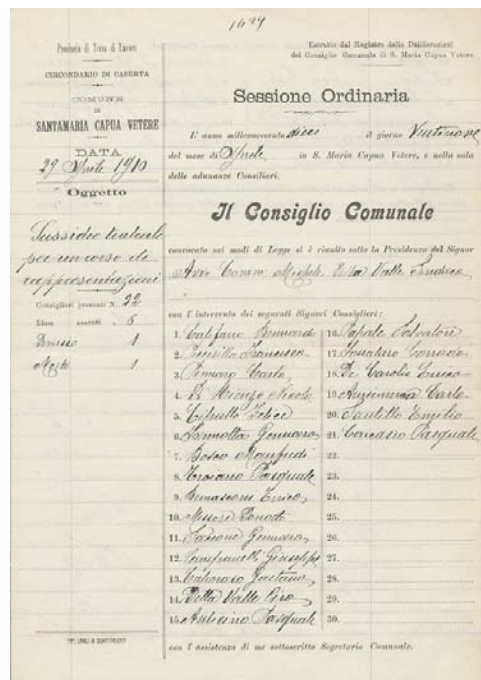 Provincia di Terra di Lavoro
CIRCONDARIO DI CASERTA
COMUNE
DI
SANTAMARIA CAPUA VETERE
DATA
29 Aprile 1910
Oggetto
Sussidio teatrale
per un corso di
rappresentazioni
Consiglieri presenti N. 22
Idem assenti . 6
1
Morto 1
Estratto dal Registro delle Deliberazioni
del Consiglio Comunale di S. Maria Capua Vetere
Sessione Ordinaria
L' anno millenovecento dieci il giorno Ventinove
del mese di Aprile in S. Maria Capua Vetere, e nella sala
delle adunanze Consiliari.
Il Consiglio Comunale
convocato nei modi di Legge si è riunito sotto la Presidenza del Signor
Avv. Comm. Della Valle
con l' intervento dei seguenti Signori Consiglieri:
1. Califano
2. Francesco
3. Carlo
4. Di Nicola
5. Felice
6. Iannotta Gennaro
7. Bosco Manfredi
8. Pasquale
9. Bernasconi Enrico
10. Donato
11. Gennaro
12. Giuseppe
13. Caporaso Gaetano
14. Della Valle Ciro
15. Pasquale
16. Papale Salvatore
17. Corrado
18. De Carolis Enrico
19. Carlo
20. Santillo Emilio
21. Carcasio Pasquale
22.
23.
24.
25.
26.
27.
28.
29.
30.
con l' assistenza di me sottoscritto Segretario Comunale.